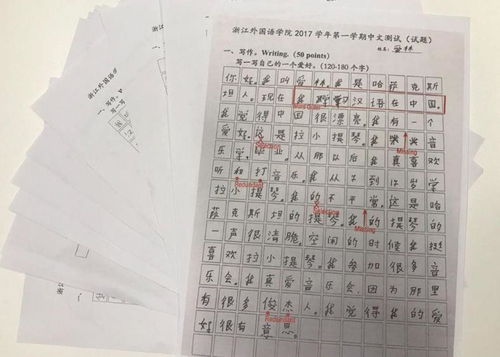 浙江外国语学院 2017 学年第一学期中文测试（试题）
姓名：爱林
一、写作。Writing.（50 points）
写一写自己的一个爱好。（120-180 个字）
你好。我叫爱林。我是哈萨克斯
坦人。现在我学习汉语在中国。
Miss order
我觉得中国很漂亮。我有一个
爱好。这是拉小提琴。我 音
Selection
Missing
乐学 业。从那以后我真喜欢
听和打音乐。我从 到 岁学
Redundant
拉小提琴。我的不平常。这是哈
Selection
Missing
萨克斯坦的提琴。我的提琴的
一声很清脆。空闲的时候我挺
喜欢拉小提琴。我参加很多音
乐会。我真爱音乐会。因为那里
有很多俊杰人。我觉得我的爱
Redundant
好很有意思。
浙江外国语学
一、写作。W
写一写
浙江外国语学